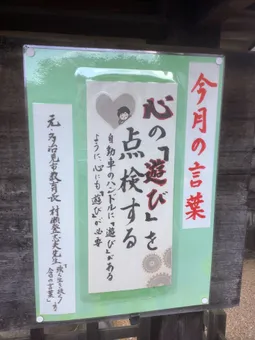 今月の言葉
心の「遊び」を
点検する
自動車のハンドルに「遊び」がある
ように、心にも「遊び」が必要
元・多治見市教育長 村瀬登志夫先生